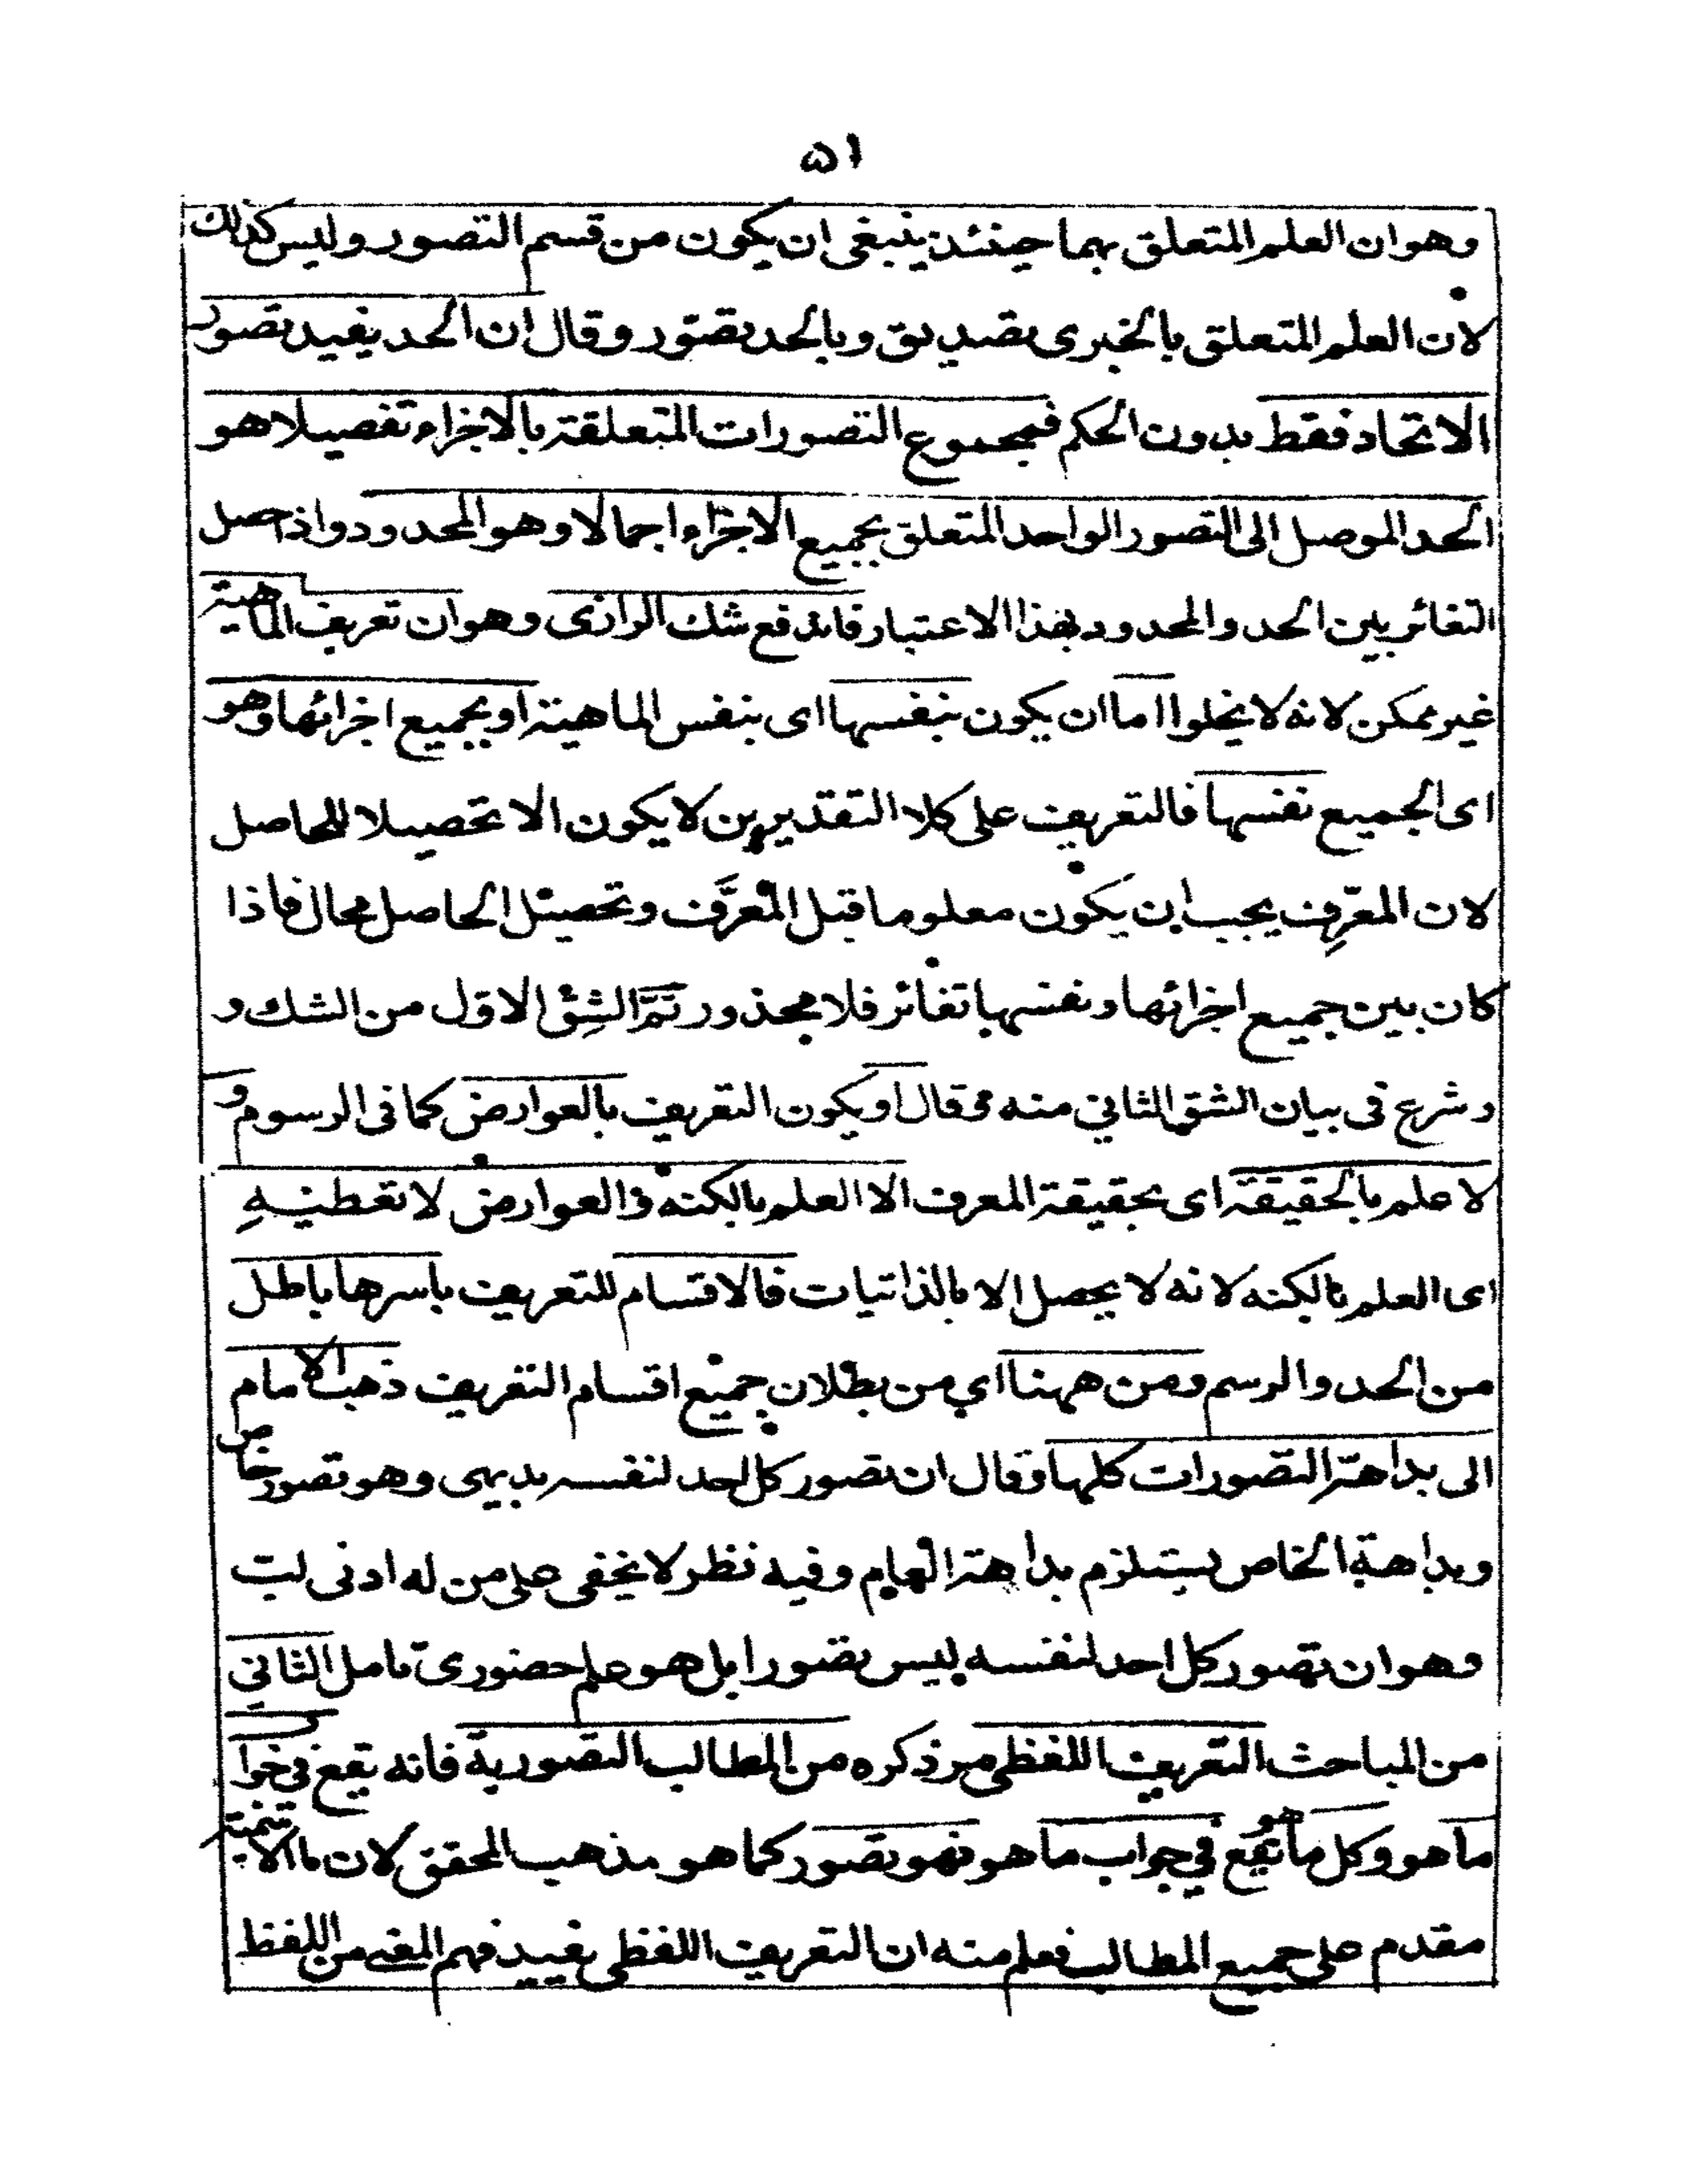 ۵۱
وهوان العلم المتعلق بهما حينئذ ينبغى ان يكون من قسم التصور وليس كذلك
لان العلم المتعلق بالخبرى تصديق وبالحد تصور وقال ان الحد يفيد تصور
الاتحاد فقط بدون الحكم فمجموع التصورات المتعلقة بالاجزاء تفصيلا هو
الحد الموصل الى التصور الواحد المتعلق بجميع الاجزاء اجمالا وهو المحدود واذا حصل
التغائر بين الحد والمحدود بهذا الاعتبار فاندفع شك الرازى وهو ان تعريف الماهية
غير ممكن لانه لا يخلوا اما ان يكون بنفسها اى بنفس الماهية او بجميع اجزائها وهو
اى الجميع نفسها فالتعريف على كلا التقديرين لا يكون الا تحصيلا للحاصل
لان المعرِّف يجب ان يكون معلوما قبل المعرَّف وتحصيل الحاصل محال فاذا
كان بين جميع اجزائها ونفسها تغائر فلا محذور تمَّ الشِق الاول من الشك و
وشرع فى بيان الشق الثاني منه وقال او يكون التعريف بالعوارض كما فى الرسوم و
لا علم بالحقيقة اى بحقيقة المعرف الا العلم بالكنه والعوارض لا تعطيهِ
اى العلم بالكنه لانه لا يحصل الا بالذاتيات فالاقسام للتعريف باسرها باطل
من الحد والرسم ومن ههنا اي من بطلان جميع اقسام التعريف ذهب الامام
الى بداهة التصورات كلها وقال ان تصور كل احد لنفسه بديهى وهو تصور خاص
وبداهة الخاص يستلزم بداهة العام وفيه نظر لا يخفى على من له ادنى لب
وهو ان تصور كل احد لنفسه ليس تصورا بل هو علم حضورى تامل الثانى
من المباحث التعريف اللفظى مر ذكره من المطالب التصورية فانه يقع فى جواب
ما هو وكل ما هو يقع في جواب ما هو فهو تصور كما هو مذهب المحقق لان ما الاسمية
مقدم على جميع المطالب فعلم منه ان التعريف اللفظى يفيد فهم المعنى من اللفظ